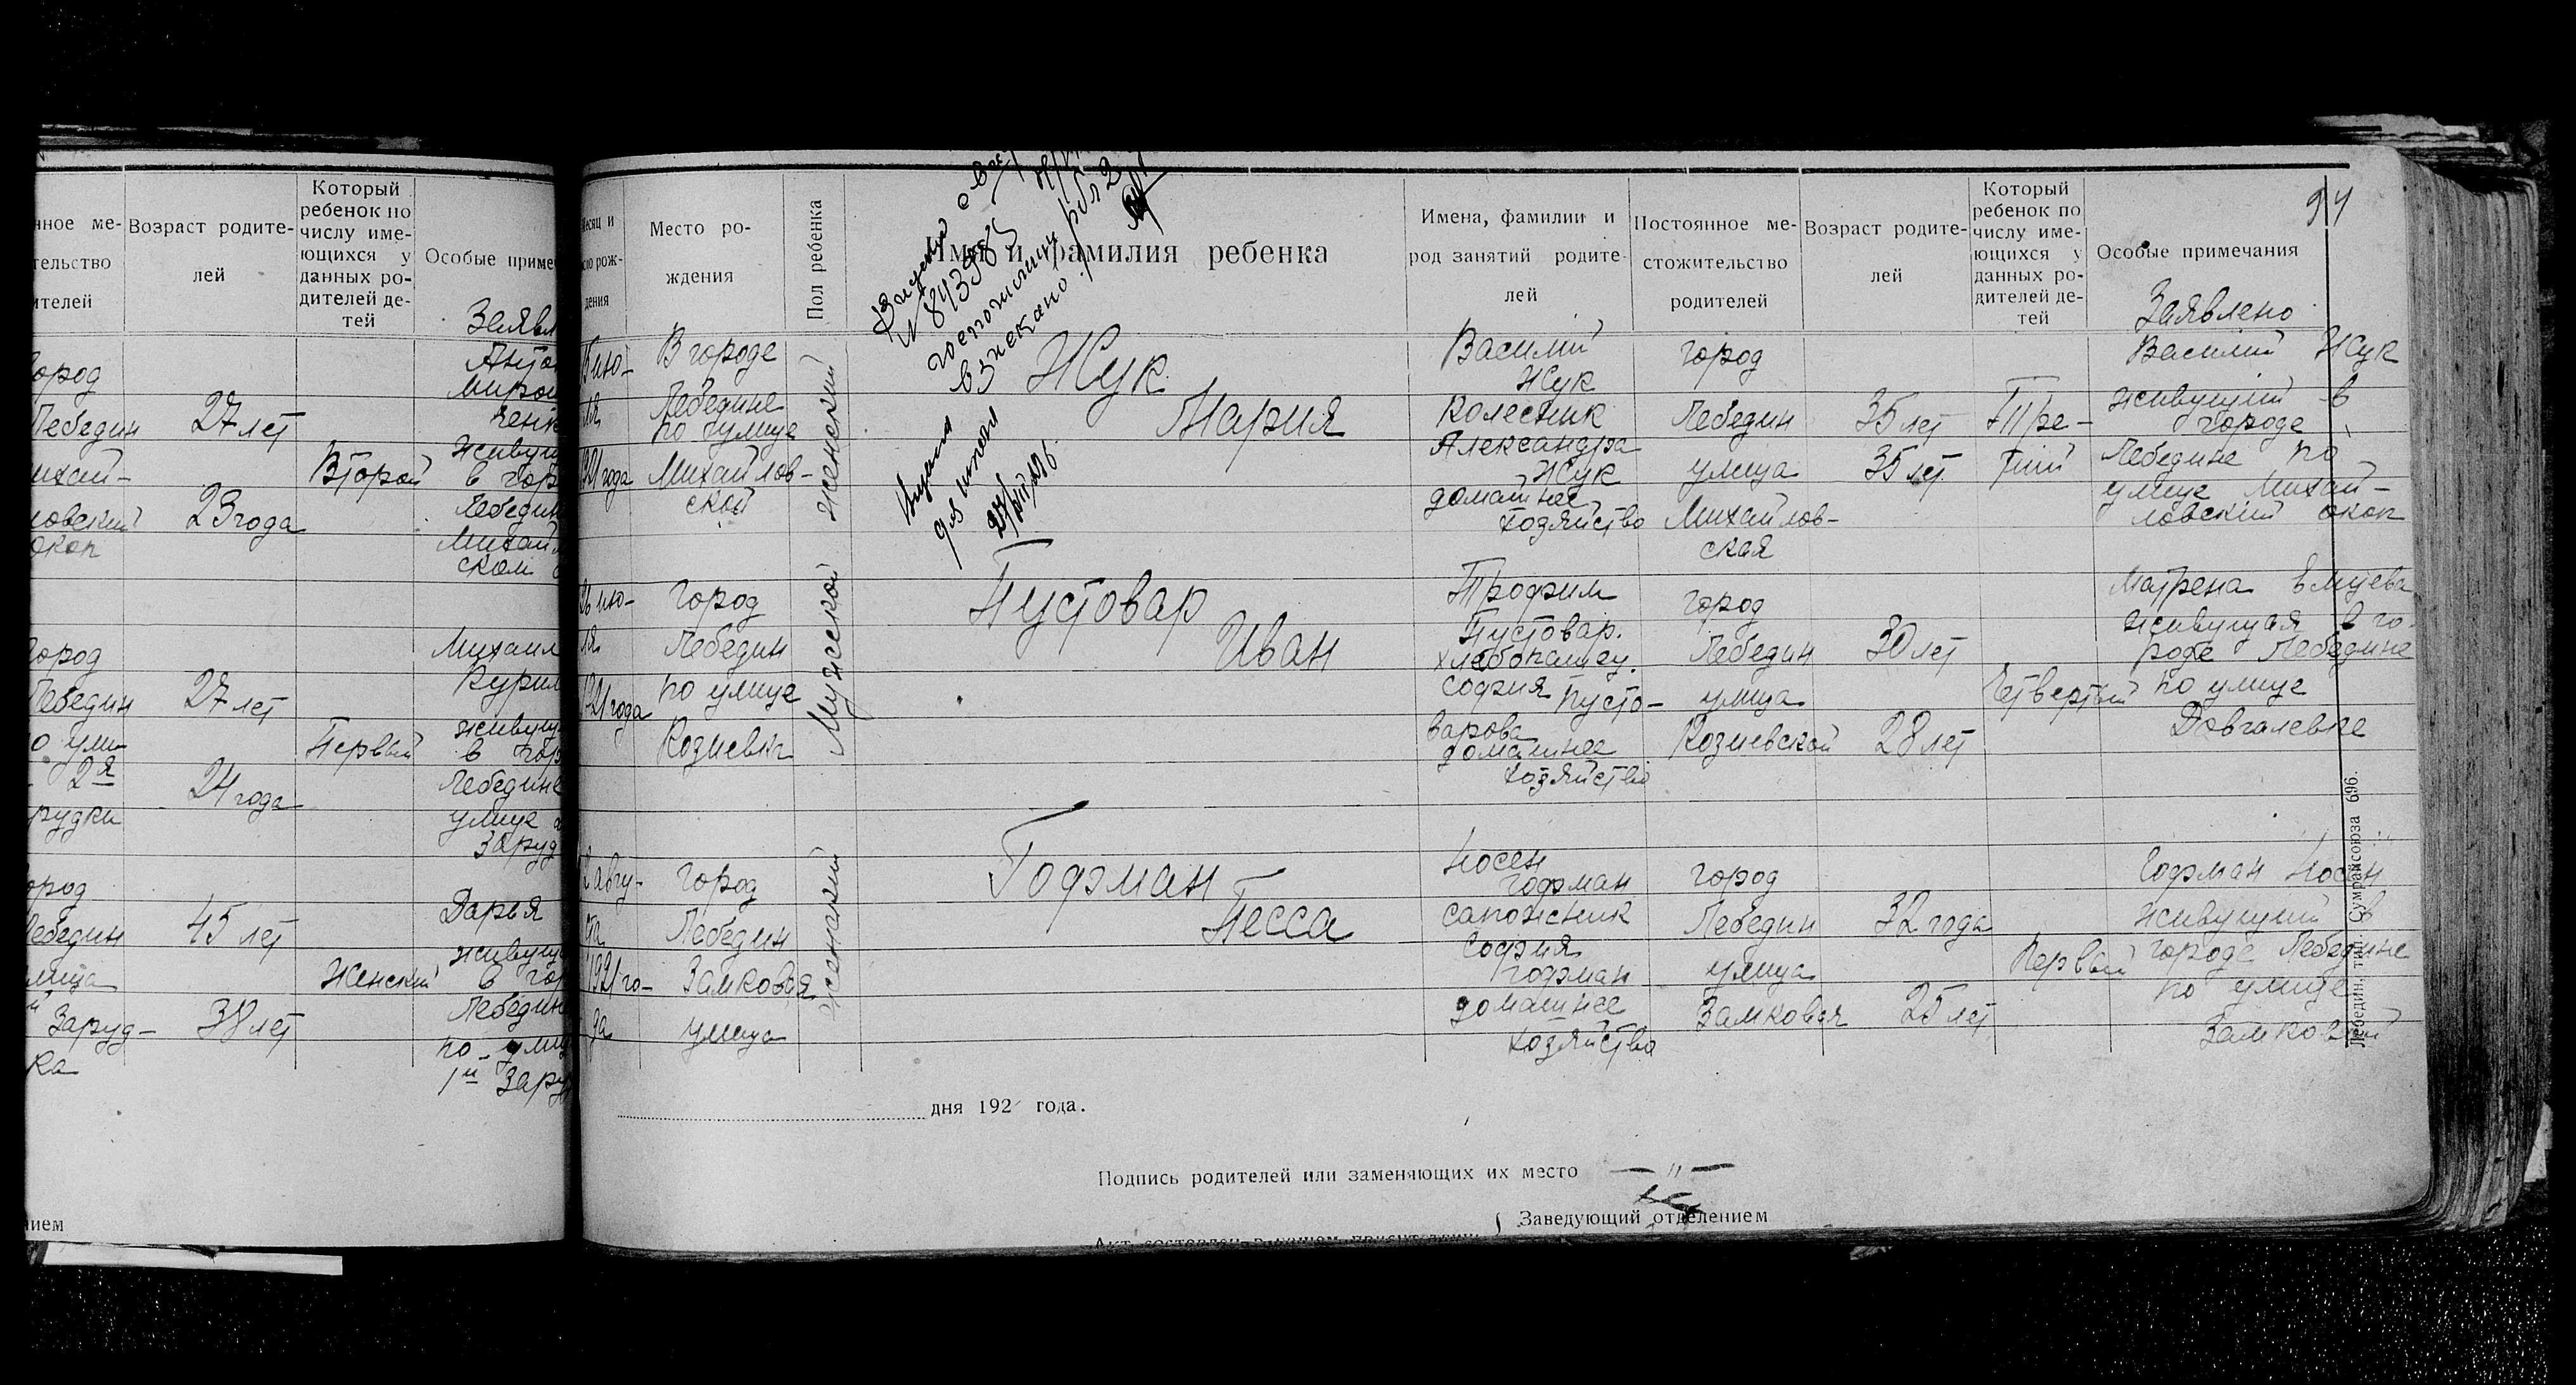 нное ме-
тельство
ителей
Возраст родите-
лей
Который
ребенок по
числу име-
ющихся у
данных ро-
дителей де-
тей
Особые приме
Заявл
ород
Лебедин
михай-
ловский
окоп
27 лет
23 года
Второй
Анто
Мирон
ченк
живущ
в гор
Лебедин
Михайл
ском
город
Лебедин
о ули
2я
рудки
27 лет
24 года
Первый
Михаил
Курил
живущ
в гор
Лебедине
улице
Заруд
ород
Лебедин
улица
Заруд-
ка
45 лет
38 лет
Женский
Дарья
живущ
в гор
Лебедин
по улиц
1й Заруд
нием
Месяц и
число рож-
дения
Место ро-
ждения
Пол ребенка
Имя и фамилия ребенка
Имена, фамилии и
род занятий родите-
лей
Постоянное ме-
стожительство
родителей
Возраст родите-
лей
Который
ребенок по
числу име-
ющихся у
данных ро-
дителей де-
тей
Особые примечания
94
Заявлено
5 ию-
ля
1921 года
В городе
Лебедине
по улице
Михайлов-
ской
женский
Жук
Мария
Василий
Жук
Колесник
Александра
Жук
домашнее
хозяйство
город
Лебедин
улица
Михайлов-
ская
35 лет
35 лет
Тре-
тий
Василий Жук
живущий в
городе
Лебедине по
улице Михай-
ловский окоп
ию-
ля
1921 года
Город
Лебедин
по улице
Козиевка
Мужской
Пустовар
Иван
Трофим
Пустовар.
хлебопашец.
София Пусто-
варова
домашнее
хозяйство
город
Лебедин
улица
Козиевской
30 лет
28 лет
Четвертый
Матрена
живущая в го-
роде Лебедине
по улице
Довгалевке
2 авгу-
ста
1921 го-
да
Город
Лебедин
Замковая
улица
женский
Гофман
Песса
Носен
Гофман
сапожник
София
Гофман
домашнее
хозяйство
город
Лебедин
улица
Замковая
32 года
25 лет
Первый
Гофман Носен
живущий в
городе Лебедине
по улице
Замковой
Лебедин. тип. Сумрайсоюза 696.
дня 192 года.
Подпись родителей или заменяющих их место — " —
Заведующий отделением